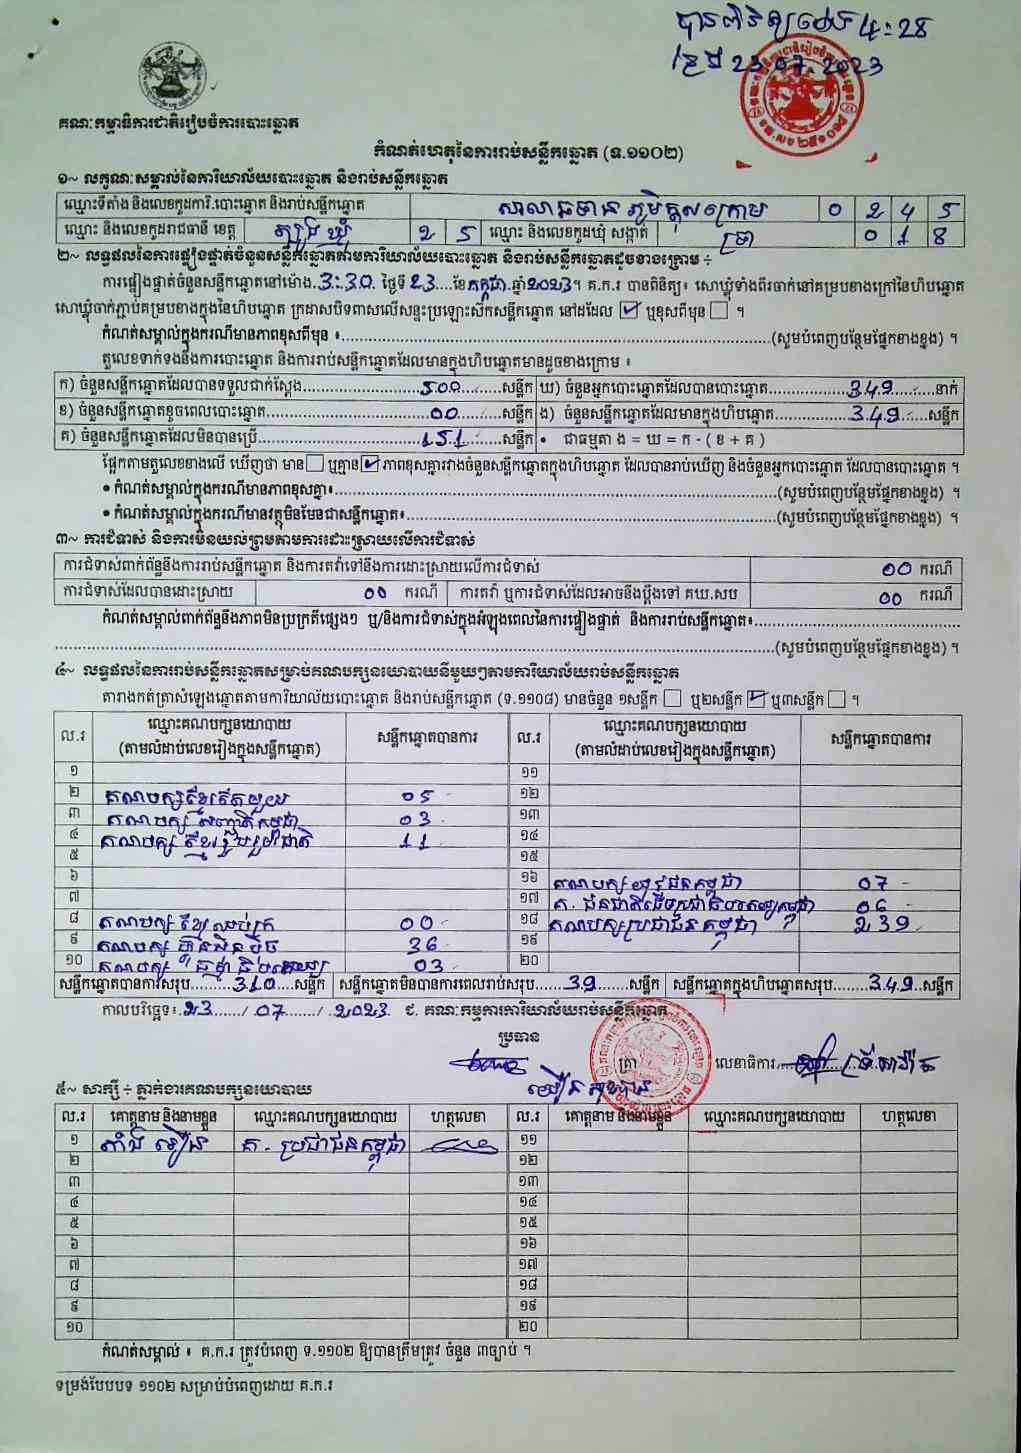 បានពិនិត្យ ម៉ោង ៤:២៨
ថ្ងៃទី 23.07.2023
គណៈកម្មាធិការជាតិរៀបចំការបោះឆ្នោត
កំណត់ហេតុនៃការរាប់សន្លឹកឆ្នោត (ទ.១១០២)
១~ លក្ខណៈសម្គាល់នៃការិយាល័យបោះឆ្នោត និងរាប់សន្លឹកឆ្នោត
ឈ្មោះទីតាំង និងលេខកូដការិ.បោះឆ្នោត និងរាប់សន្លឹកឆ្នោត សាលាធម្មសភា ភូមិត្នោតក្រោម 0 2 4 5
ឈ្មោះ និងលេខកូដរាជធានី ខេត្ត ត្បូងឃ្មុំ 2 5 ឈ្មោះ និងលេខកូដឃុំ សង្កាត់ 0 1 8
២~ លទ្ធផលនៃការផ្ទៀងផ្ទាត់ចំនួនសន្លឹកឆ្នោតតាមការិយាល័យបោះឆ្នោត និងរាប់សន្លឹកឆ្នោតដូចខាងក្រោម ÷
ការផ្ទៀងផ្ទាត់ចំនួនសន្លឹកឆ្នោតនៅម៉ោង.3:30. ថ្ងៃទី 23....ខែកក្កដា.ឆ្នាំ2023។ គ.ក.រ បានពិនិត្យ៖ សោឃ្លុំទាំងពីរចាក់នៅគម្របខាងក្រៅនៃហិបឆ្នោត
សោឃ្លុំចាក់ភ្ជាប់គម្របខាងក្នុងនៃហិបឆ្នោត ក្រដាសបិទពាសលើសន្ទះប្រឡោះស៊កសន្លឹកឆ្នោត នៅដដែល ☑ ឬខុសពីមុន ☐ ។
កំណត់សម្គាល់ក្នុងករណីមានភាពខុសពីមុន ៖..........(សូមបំពេញបន្ថែមផ្នែកខាងខ្នង) ។
តួលេខទាក់ទងនឹងការបោះឆ្នោត និងការរាប់សន្លឹកឆ្នោតដែលមានក្នុងហិបឆ្នោតមានដូចខាងក្រោម ៖
ក) ចំនួនសន្លឹកឆ្នោតដែលបានទទួលជាក់ស្តែង..........500..........សន្លឹក ឃ) ចំនួនអ្នកបោះឆ្នោតដែលបានបោះឆ្នោត..........349..........នាក់
ខ) ចំនួនសន្លឹកឆ្នោតខូចពេលបោះឆ្នោត..........00..........សន្លឹក ង) ចំនួនសន្លឹកឆ្នោតដែលមានក្នុងហិបឆ្នោត..........349..........សន្លឹក
គ) ចំនួនសន្លឹកឆ្នោតដែលមិនបានប្រើ..........151..........សន្លឹក • ជាធម្មតា ង = ឃ = ក - ( ខ + គ )
ផ្អែកតាមតួលេខខាងលើ ឃើញថា មាន ☐ ឬគ្មាន ☑ ភាពខុសគ្នារវាងចំនួនសន្លឹកឆ្នោតក្នុងហិបឆ្នោត ដែលបានរាប់ឃើញ និងចំនួនអ្នកបោះឆ្នោត ដែលបានបោះឆ្នោត ។
• កំណត់សម្គាល់ក្នុងករណីមានភាពខុសគ្នា៖..........(សូមបំពេញបន្ថែមផ្នែកខាងខ្នង) ។
• កំណត់សម្គាល់ក្នុងករណីមានវត្ថុមិនមែនជាសន្លឹកឆ្នោត៖..........(សូមបំពេញបន្ថែមផ្នែកខាងខ្នង) ។
៣~ ការជំទាស់ និងការមិនយល់ព្រមតាមការដោះស្រាយលើការជំទាស់
ការជំទាស់ពាក់ព័ន្ធនឹងការរាប់សន្លឹកឆ្នោត និងការតវ៉ាទៅនឹងការដោះស្រាយលើការជំទាស់ 00 ករណី
ការជំទាស់ដែលបានដោះស្រាយ 00 ករណី ការតវ៉ា ឬការជំទាស់ដែលអាចនឹងប្តឹងទៅ គឃ.សប 00 ករណី
កំណត់សម្គាល់ពាក់ព័ន្ធនឹងភាពមិនប្រក្រតីផ្សេងៗ ឬ/និងការជំទាស់ក្នុងអំឡុងពេលនៃការផ្ទៀងផ្ទាត់ និងការរាប់សន្លឹកឆ្នោត៖..........
..........(សូមបំពេញបន្ថែមផ្នែកខាងខ្នង) ។
៤~ លទ្ធផលនៃការរាប់សន្លឹកឆ្នោតសម្រាប់គណបក្សនយោបាយនីមួយៗតាមការិយាល័យរាប់សន្លឹកឆ្នោត
តារាងកត់ត្រាសំឡេងឆ្នោតតាមការិយាល័យបោះឆ្នោត និងរាប់សន្លឹកឆ្នោត (ទ.១១០៨) មានចំនួន ១សន្លឹក ☐ ឬ២សន្លឹក ☑ ឬ៣សន្លឹក ☐ ។
ល.រ ឈ្មោះគណបក្សនយោបាយ (តាមលំដាប់លេខរៀងក្នុងសន្លឹកឆ្នោត) សន្លឹកឆ្នោតបានការ ល.រ ឈ្មោះគណបក្សនយោបាយ (តាមលំដាប់លេខរៀងក្នុងសន្លឹកឆ្នោត) សន្លឹកឆ្នោតបានការ
១ ១១
២ គណបក្សខ្មែរតែមួយ 05 ១២
៣ គណបក្ស សញ្ជាតិកម្ពុជា 03 ១៣
៤ គណបក្ស ខ្មែររួបរួមជាតិ 11 ១៤
៥ ១៥
៦ ១៦ គណបក្សយុវជនកម្ពុជា 07
៧ ១៧ គ. ជនជាតិដើមប្រជាធិបតេយ្យកម្ពុជា 06
៨ គណបក្ស ខ្មែរឈប់ក្រ 00 ១៨ គណបក្សប្រជាជនកម្ពុជា 239
៩ គណបក្ស ហ៊្វុនស៊ិនប៉ិច 36 ១៩
១០ គណបក្ស ធម្មាធិបតេយ្យ 03 ២០
សន្លឹកឆ្នោតបានការសរុប.........310.....សន្លឹក សន្លឹកឆ្នោតមិនបានការពេលរាប់សរុប......39......សន្លឹក សន្លឹកឆ្នោតក្នុងហិបឆ្នោតសរុប........349....សន្លឹក
កាលបរិច្ឆេទ៖.23....../.07......./..2023. ជ. គណៈកម្មការការិយាល័យរាប់សន្លឹកឆ្នោត
ប្រធាន
ត្រា លេខាធិការ
៥~ សាក្សី ÷ ភ្នាក់ងារគណបក្សនយោបាយ
ល.រ គោត្តនាម និងនាមខ្លួន ឈ្មោះគណបក្សនយោបាយ ហត្ថលេខា ល.រ គោត្តនាម និងនាមខ្លួន ឈ្មោះគណបក្សនយោបាយ ហត្ថលេខា
១ គ. ប្រជាជនកម្ពុជា ១១
២ ១២
៣ ១៣
៤ ១៤
៥ ១៥
៦ ១៦
៧ ១៧
៨ ១៨
៩ ១៩
១០ ២០
កំណត់សម្គាល់ ៖ គ.ក.រ ត្រូវបំពេញ ទ.១១០២ ឱ្យបានត្រឹមត្រូវ ចំនួន ៣ច្បាប់ ។
ទម្រង់បែបបទ ១១០២ សម្រាប់បំពេញដោយ គ.ក.រ